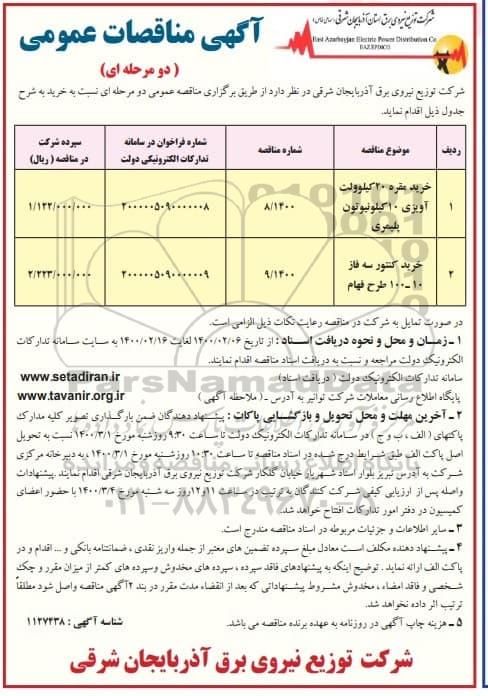 شرکت توزیع نیروی برق استان آذربایجان شرقی
East Azarbayjan Electric Power Distribution Co.
EAZEPDCO
آگهی مناقصات عمومی
( دو مرحله ای )
شرکت توزیع نیروی برق آذربایجان شرقی در نظر دارد از طریق برگزاری مناقصه عمومی دو مرحله ای نسبت به خرید به شرح
جدول ذیل اقدام نماید.
ردیف موضوع مناقصه شماره مناقصه شماره فراخوان در سامانه تدارکات الکترونیکی دولت سپرده شرکت در مناقصه ( ریال)
۱ خرید مقره ۲۰کیلوولت آویزی ۱۰کیلونیوتون پلیمری ۸/۱۴۰۰ ۲۰۰۰۰۰۵۰۹۰۰۰۰۰۰۸ ۱/۱۲۲/۰۰۰/۰۰۰
۲ خرید کنتور سه فاز ۱۰-۱۰۰ طرح فهام ۹/۱۴۰۰ ۲۰۰۰۰۰۵۰۹۰۰۰۰۰۰۹ ۲/۲۲۳/۰۰۰/۰۰۰
در صورت تمایل به شرکت در مناقصه رعایت نکات ذیل الزامی است.
۱ ـ زمـان و محل و نحوه دریافت اسناد : از تاریخ ۱۴۰۰/۰۲/۰۶ لغایت ۱۴۰۰/۰۲/۱۶ به سایت سامانه تدارکات
الکترونیک دولت مراجعه و نسبت به دریافت اسناد مناقصه اقدام نمایند.
سامانه تدارکات الکترونیک دولت ( دریافت اسناد) www.setadiran.ir
پایگاه اطلاع رسانی معاملات شرکت توانیر به آدرس ـ (ملاحظه آگهی ) www.tavanir.org.ir
۲ ـ آخرین مهلت و محل تحویل و بازگشـایی پاکات : پیشنهاد دهندگان ضمن بارگذاری تصویر کلیه مدارک
پاکتهای ( الف ، ب و ج ) در سـامانه تدارکات الکترونیک دولت تا ساعت ۹:۳۰ روزشنبه مورخ ۱۴۰۰/۳/۱ نسبت به تحویل
اصل پاکت الف طبق شـرایط درج شده در اسناد مناقصه تا ساعت ۱۰:۳۰ روزشـنبه مورخ ۱۴۰۰/۳/۱ ، به دبیرخانه مرکزی
شرکت به آدرس تبریز بلوار استاد شـهریار خیابان گلکار شرکت توزیع نیروی برق آذربایجان شرقی اقدام نمایند .پیشنهادات
واصله پس از ارزیابی کیفی شـرکت کنندگان به ترتیب در ساعات ۱۱و۱۲روز سه شنبه مورخ ۱۴۰۰/۳/۴ با حضور اعضای
کمیسیون در دفتر امور تدارکات افتتاح خواهد شد.
۳ ـ سایر اطلاعات و جزئیات مربوطه در اسناد مناقصه مندرج است.
۴ ـ پیشنهاد دهنده مکلف است معادل مبلغ سـپرده تضمین های معتبر از جمله واریز نقدی ، ضمانتنامه بانکی و ... اقدام و در
پاکت الف ارائه نماید . توضیح اینکه به پیشنهادهای فاقد سپرده ، سپرده های مخدوش وسپرده های کمتر از میزان مقرر و چک
شخصی و فاقد امضاء ، مخدوش مشـروط پیشنهاداتی که بعد از انقضاء مدت مقرر در بند ۲آگهی مناقصه واصل شود مطلقاً
ترتیب اثر داده نخواهد شد.
۵ ـ هزینه چاپ آگهی در روزنامه به عهده برنده مناقصه می باشد. شناسه آگهی : ۱۱۲۷۴۳۸
شرکت توزیع نیروی برق آذربایجان شرقی
ParsNamadData
۰۲۱-۸۸۳۴۹۶۷۰-۵